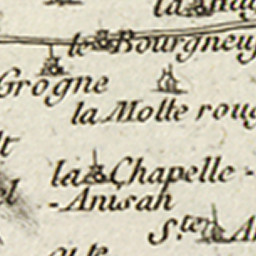 la
le Bourgneuf
Grogne
la Motte roug
la Chapelle -
- Anisan
S.te A